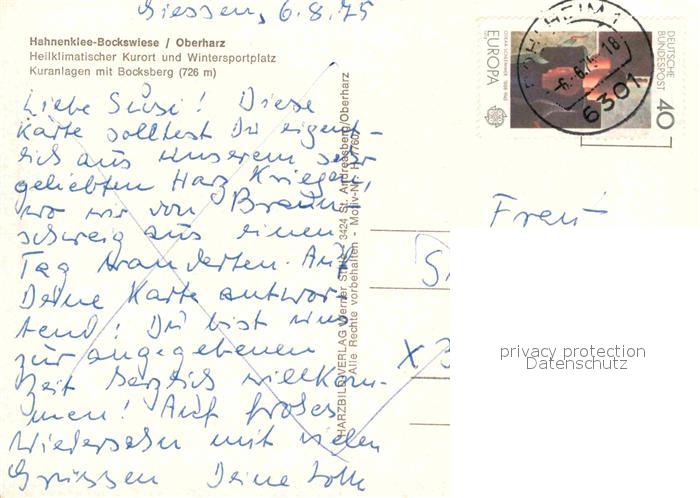 Giessen, 6.8.75
Hahnenklee-Bockswiese / Oberharz
Heilklimatischer Kurort und Wintersportplatz
Kuranlagen mit Bocksberg (726 m)
Liebe Susi! Diese
Karte solltest Du eigent-
lich aus unserem sehr
geliebten Harz kriegen,
wo wir von Braun-
schweig aus einen
Tag wanderten. Auf
Deine Karte antwor-
tend: Du bist uns
zur angegebenen
Zeit herzlich willkom-
men! Auf frohes
Wiedersehn mit vielen
Grüssen Deine
HARZBILD-VERLAG Werner 3424 St. Andreasberg/Oberharz
Alle Rechte vorbehalten - Motiv-Nr. H
EUROPA
DEUTSCHE
BUNDESPOST
40
6301
Frau
privacy protection
Datenschutz